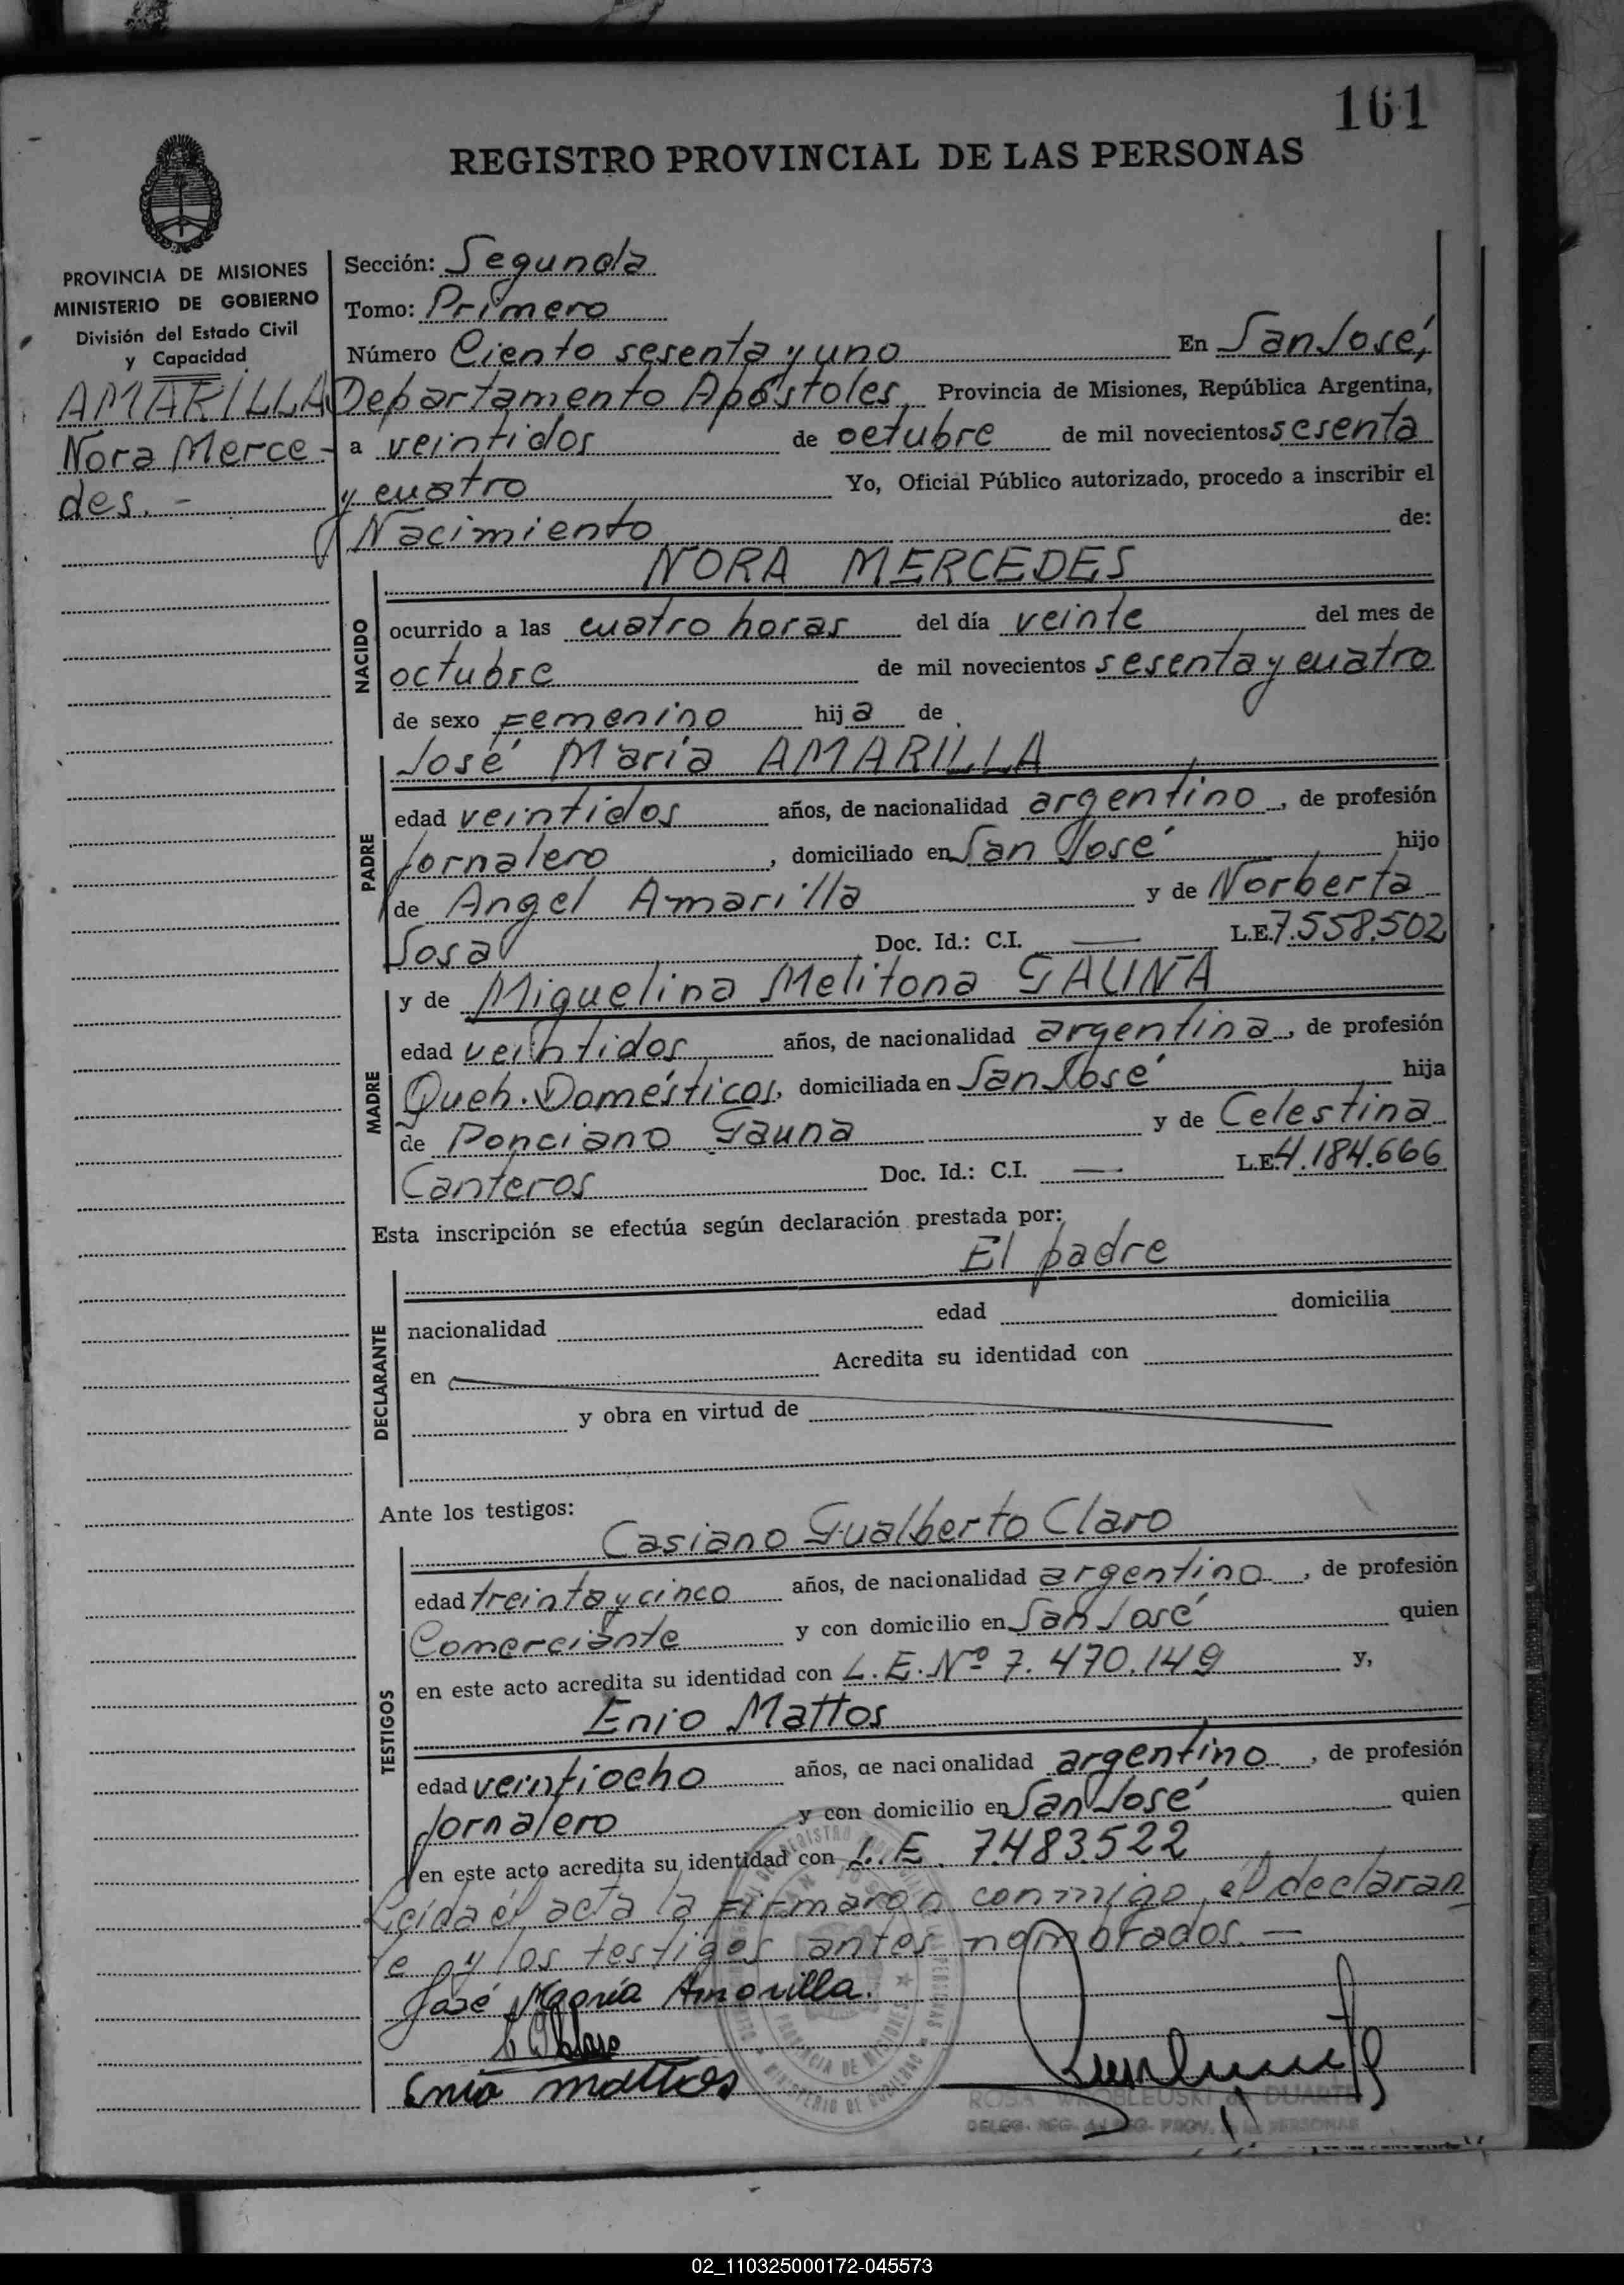 161
REGISTRO PROVINCIAL DE LAS PERSONAS
PROVINCIA DE MISIONES
MINISTERIO DE GOBIERNO
División del Estado Civil
y Capacidad
AMARILLA
Nora Merce-
des.-
Sección: Segunda
Tomo: Primero
Número Ciento sesenta y uno En San José,
Departamento Apóstoles, Provincia de Misiones, República Argentina,
a veintidos de octubre de mil novecientos sesenta
y cuatro Yo, Oficial Público autorizado, procedo a inscribir el
Nacimiento de:
NORA MERCEDES
NACIDO
ocurrido a las cuatro horas del día veinte del mes de
octubre de mil novecientos sesenta y cuatro
de sexo Femenino hija de
PADRE
José María AMARILLA
edad veintidos años, de nacionalidad argentino, de profesión
Jornalero, domiciliado en San José hijo
de Angel Amarilla y de Norberta
Sosa Doc. Id.: C.I. — L.E. 7.558.502
MADRE
y de Miguelina Melitona GAUNA
edad veintidos años, de nacionalidad argentina, de profesión
Queh. Domésticos, domiciliada en San José hija
de Ponciano Gauna y de Celestina
Canteros Doc. Id.: C.I. — L.E. 4.184.666
Esta inscripción se efectúa según declaración prestada por:
El padre
DECLARANTE
nacionalidad edad domicilia
en Acredita su identidad con
y obra en virtud de
Ante los testigos:
TESTIGOS
Casiano Gualberto Claro
edad treinta y cinco años, de nacionalidad argentino, de profesión
Comerciante y con domicilio en San José quien
en este acto acredita su identidad con L.E. Nº 7.470.149 y,
Enio Mattos
edad veintiocho años, de nacionalidad argentino, de profesión
Jornalero y con domicilio en San José quien
en este acto acredita su identidad con L.E. 7.483.522
Leida él acta la Firmaron conmigo, el declaran
te y los testigos antes nombrados.—
José María Amarilla.
Enio mattos
ROSA WROBLEUSKI de DUARTE
DELEG. REG. del REG. PROV. de las PERSONAS
02_110325000172-045573